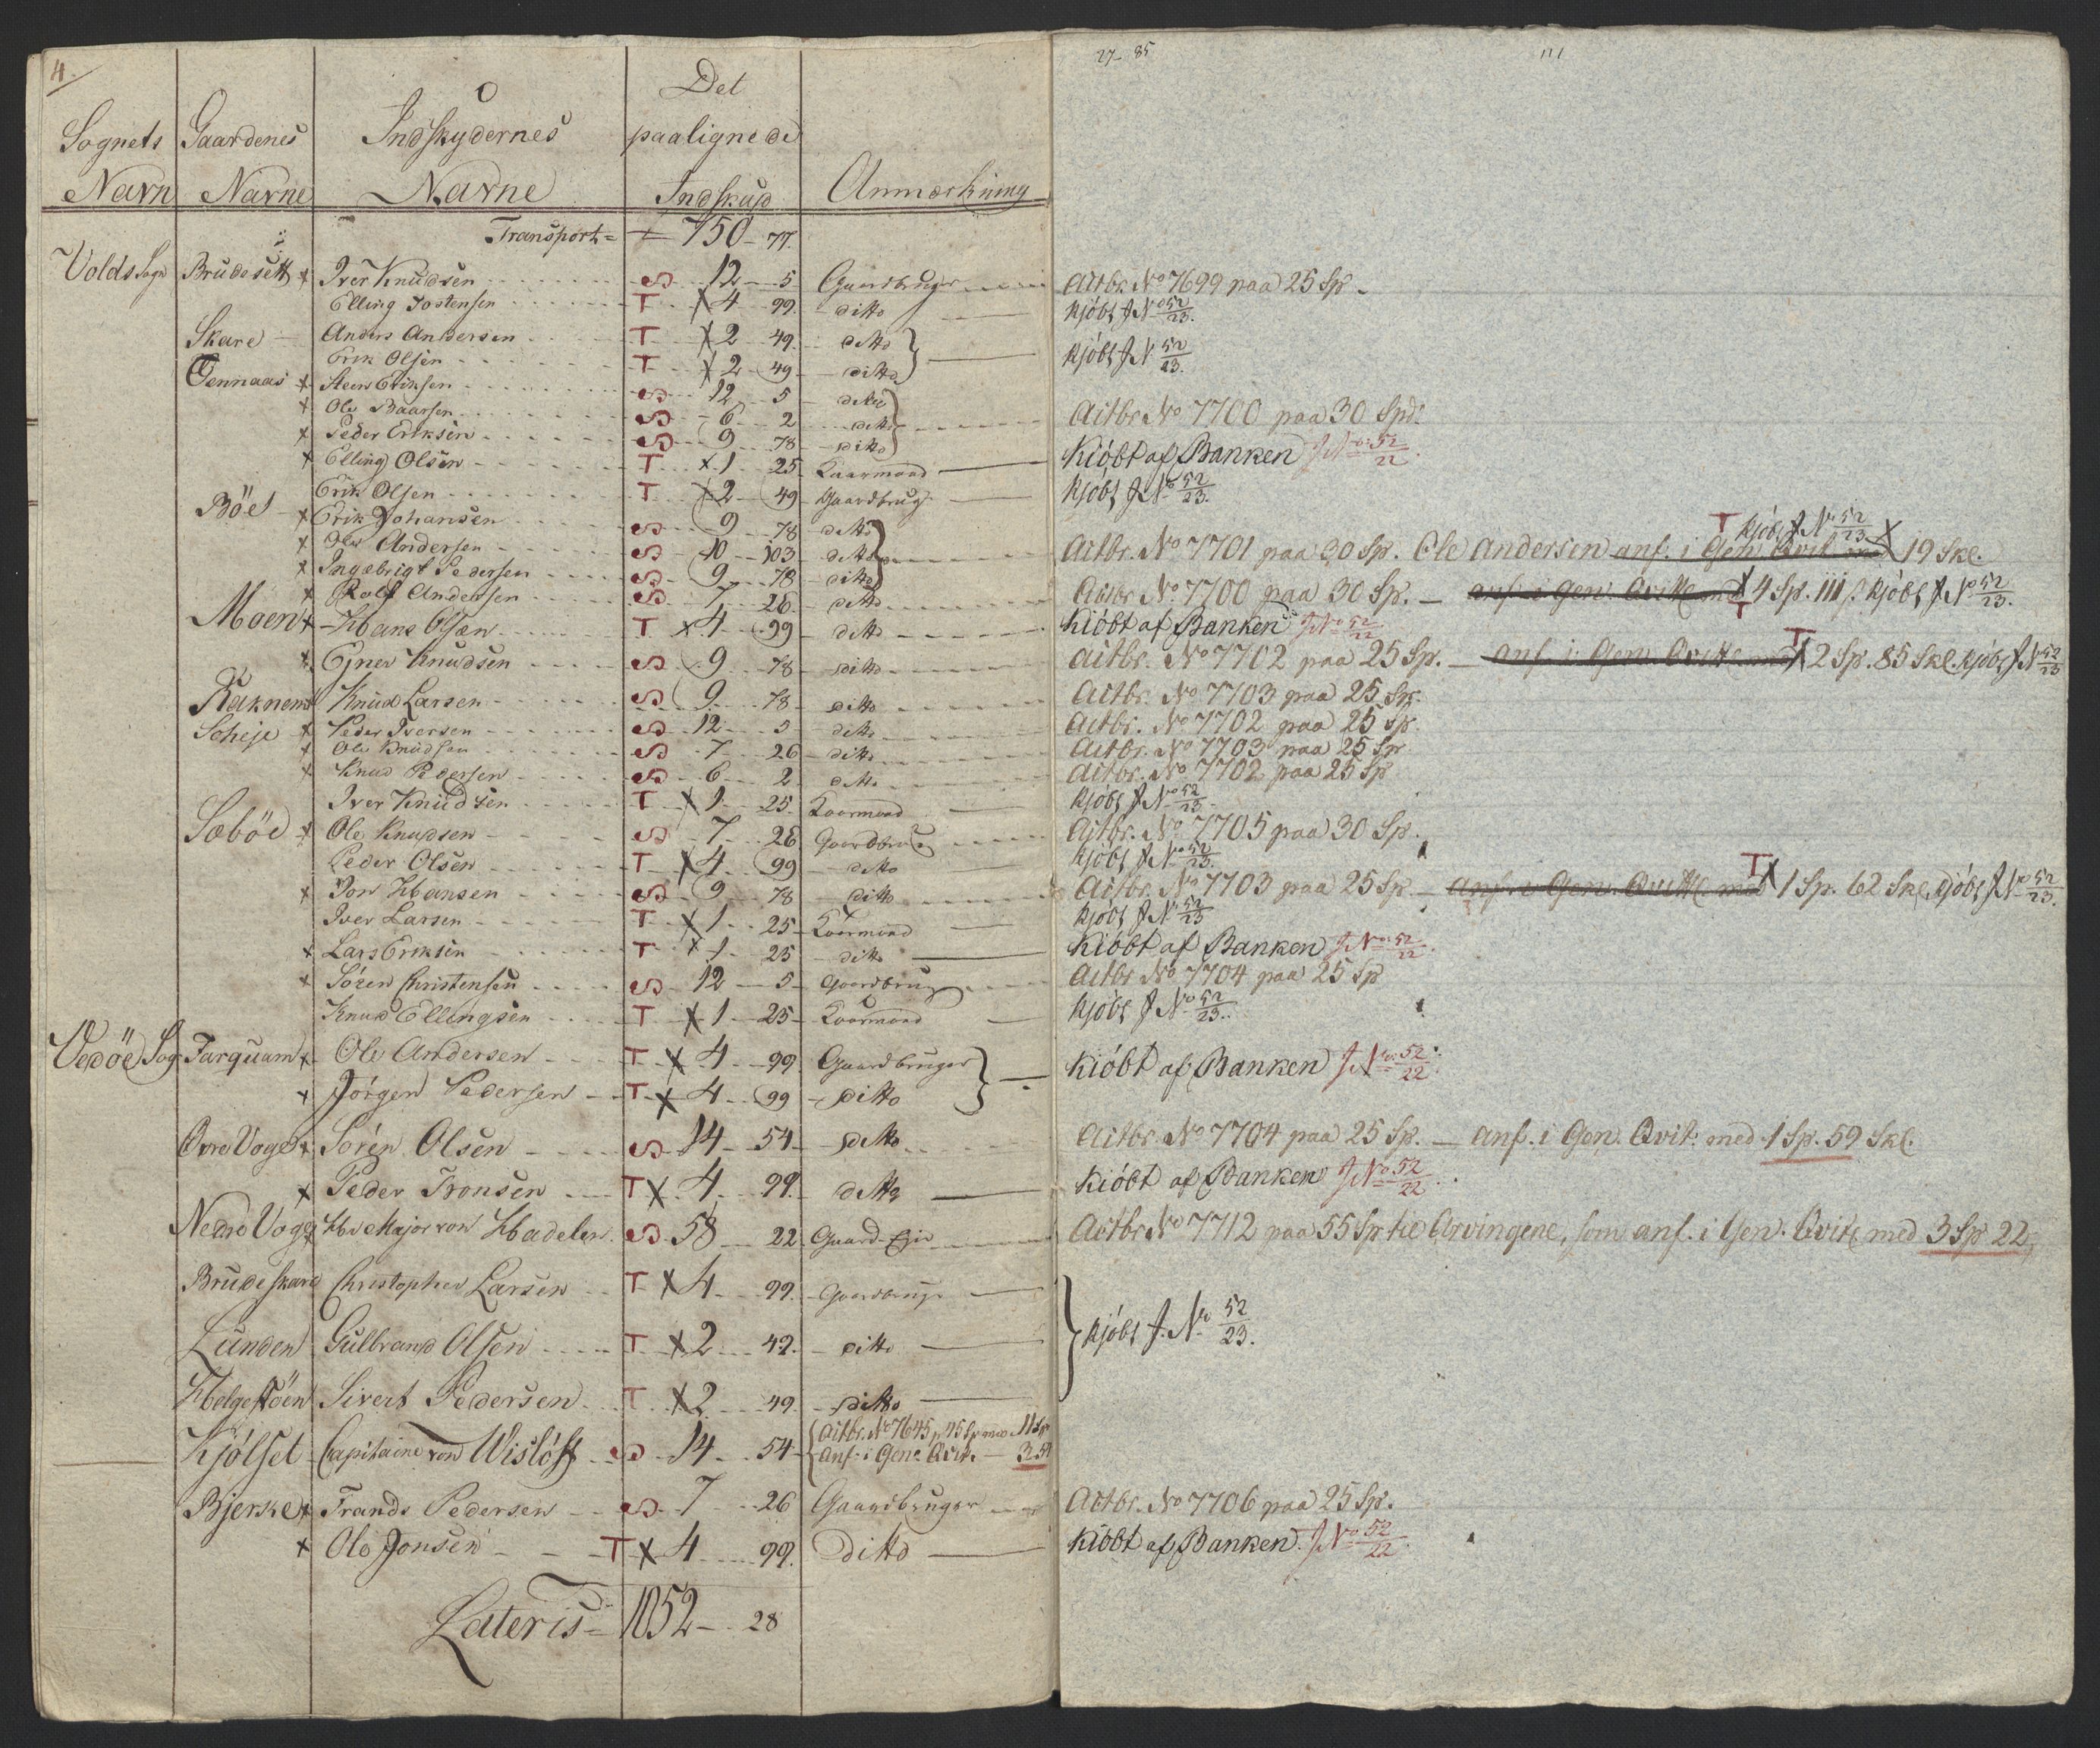 4.
27- 85
111
Sognets Navn | Gaardenes Navne | Indskydernes Navne | Det paalignede Indskud | Anmærkning
Transport = 750 - 77.
Volds Sogn Brudesett x Iver Knudsen S 12 - 5 Gaardbruger Actbr. No 7699 paa 25 Sp.
Elling Jostensen T x 4 99. ditto kjöbt J No 52/23.
Skare Anders Andersen T x 2 49. ditto
Erik Olsen T x 2 49 ditto } kjöbt J N 52/23.
Gennaas x Steen Eriksen S 12 5 ditto
x Ole Baarsen S 6 2 ditto Actbr. No 7700 paa 30 Spd.
x Peder Eriksen S 9 78 ditto
x Elling Olsen T x 1 25 Kaarmand Kiöbt af Banken J No 52/22.
Erik Olsen T x 2 49 Gaardbrug kjöbt J No 52/23.
Böe x Erik Johansen S 9 78 ditto
x Ole Andersen S 10 103 ditto Actbr. No 7701 paa 30 Sp. Ole Andersen anf. i Gen. Qvit. med 19 Skl. T kjöbt J No 52/23. x
x Ingebrigt Pedersen S 9 78 ditto
x Rolf Andersen S 7 26 ditto Actbr No 7700 paa 30 Sp. - anf. i gen. Qvitt. med T 4 Sp. 111 s kjöbt J No 52/23.
Moen x Hans Olsen T x 4 99 ditto Kiöbt af Banken J No 52/22
x Ejner Knudsen S 9 78 ditto Actbr. No 7702 paa 25 Sp. - anf. i Gen. Qvitt. med T 2 Sp. 85 Skl. kjöbt J N 52/23
Raknem x Knud Larsen S 9 78 ditto Actbr. No 7703 paa 25 Sp.
Scheje x Peder Iversen S 12 5 ditto Actbr. No 7702 paa 25 Sp.
x Ole Knudsen S 7 26 ditto Actbr. No 7703 paa 25 Sp
x Knud Pedersen S 6 2 ditto Actbr. No 7702 paa 25 Sp
Iver Knudsen T x 1 25 Koormand kjöbt J No 52/23
Sæböe x Ole Knudsen S 7 26 Gaardbrug Actbr. No 7705 paa 30 Sp.
Peder Olsen T x 4 99 ditto kjöbt J No 52/23.
x Jon Hansen S 9 78 ditto Actbr. No 7703 paa 25 Sp - anf. i Gen. Qvitt. med T x 1 Sp. 62 Skl. kjöbt J No 52/23.
Iver Larsen T x 1 25 Koormand kjöbt J No 52/23
x Lars Eriksen T x 1 25 ditto Kiöbt af Banken J No 52/22.
x Sören Christensen S 12 5 Gaardbrug Actbr No 7704 paa 25 Sp
Knud Ellingsen T x 1 25 Koormand kjöbt J No 52/23.
Vedöe Sog Farquam x Ole Andersen T x 4 99 Gaardbruger
x Jörgen Pedersen T x 4 99 ditto } Kiöbt af Banken J No 52/22.
Övre Voge x Soren Olsen S 14 54 ditto Actbr. No 7704 paa 25 Sp. - anf. i Gen. Qvit. med 1 Sp. 59 Skl.
x Peder Tronsen T x 4 99. ditto Kiöbt af Banken J No 52/22.
Nedre Voge x Hr. Major von Hadelen S 58 22 Gaard Ejer Actbr No 7712 paa 55 Sp til Arvingene, som anf. i Gen. Qvit. med 3 Sp 22
Brudeskare Christopher Larsen T x 4 99. Gaardbruger
Lunden Gulbrand Olsen T x 2 49. ditto } kjöbt J. No 52/23.
Helgestöen Sivert Pedersen T x 2 49. ditto
Kjölset Capitaine von Wislöff S 14 54 { Actbr. No 7645 p 45 Sp med 11 Sp
anf. i Gen. Qvit. - 3.54
Bjerke x Frands Pedersen S 7 26 Gaardbruger Actbr. No 7706 paa 25 Sp.
x Ole Jonsen T x 4 99. Ditto Kiöbt af Banken. J No 52/22.
Lateris = 1052 - 28